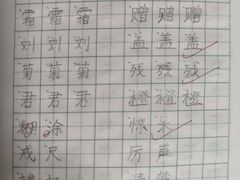 霜霜霜 赠赠赠
刘刘刘 盖盖盖
菊菊菊 残残残
君君君 橙橙橙
糊涂 惊米
戒尺 厉声